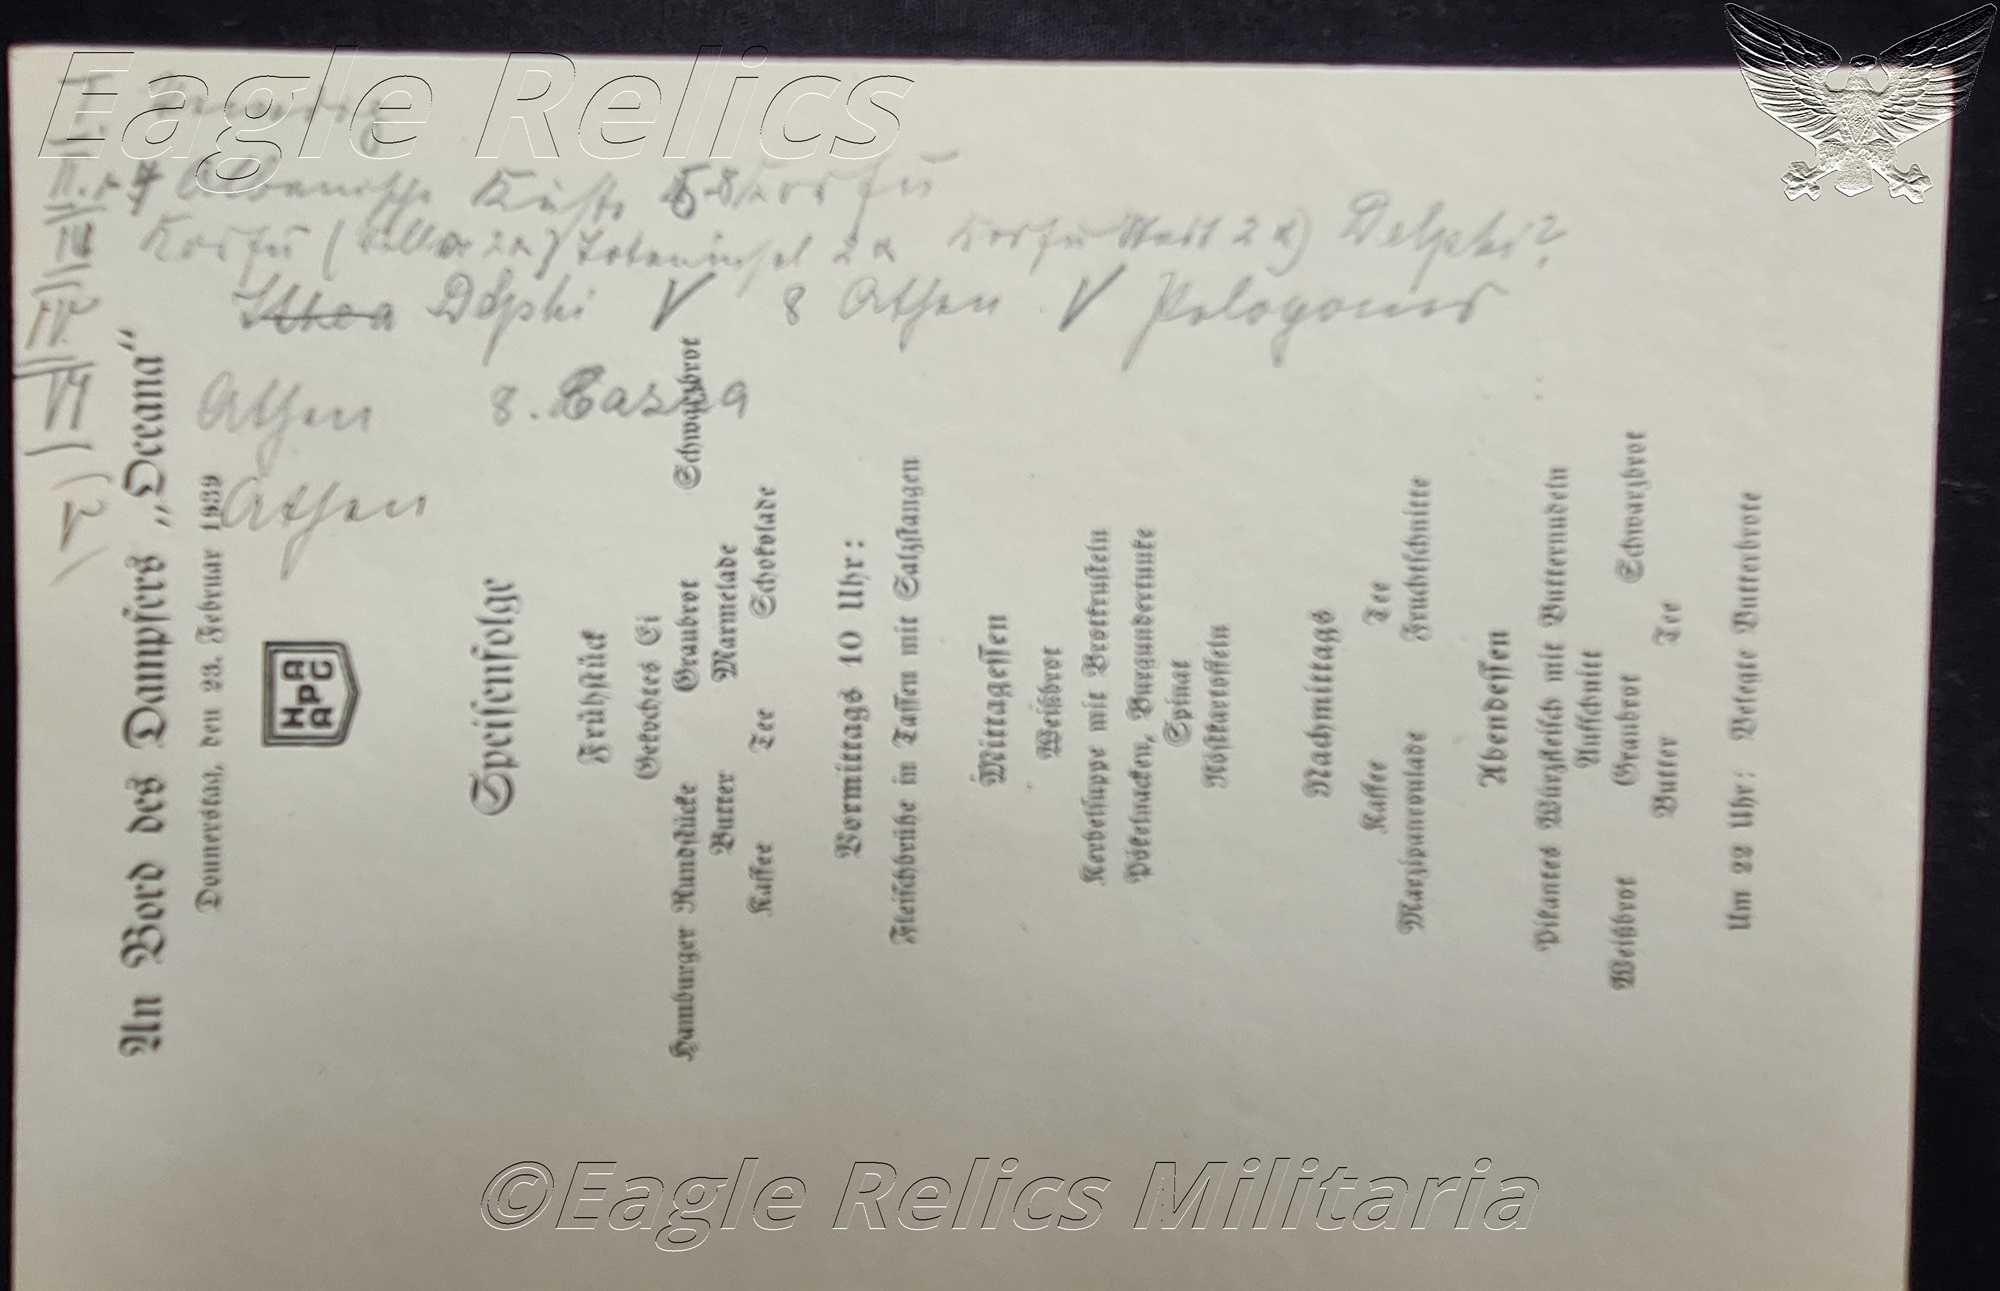 Eagle Relics
Albanische Küste Korfu
Korfu ( Toteninsel 2 Korfu Stadt 2 ) Delphi?
Ithea Delphi V 8 Athen V
Athen 8.
Athen
An Bord des Dampfers „Oceana“
Donnerstag, den 23. Februar 1939
HAPAG
Speisenfolge
Frühstück
Gekochtes Ei
Hamburger Rundstücke Graubrot Schwarzbrot
Butter Marmelade
Kaffee Tee Schokolade
Vormittags 10 Uhr:
Fleischbrühe in Tassen mit Salzstangen
Mittagessen
Weißbrot
Kerbelsuppe mit Brotkrusteln
Pökelnacken, Burgundertunke
Spinat
Röstkartoffeln
Nachmittags
Kaffee Tee
Marzipanroulade Fruchtschnitte
Abendessen
Pikantes Würzfleisch mit Butternudeln
Aufschnitt
Weißbrot Graubrot Schwarzbrot
Butter Tee
Um 22 Uhr: Belegte Butterbrote
©Eagle Relics Militaria